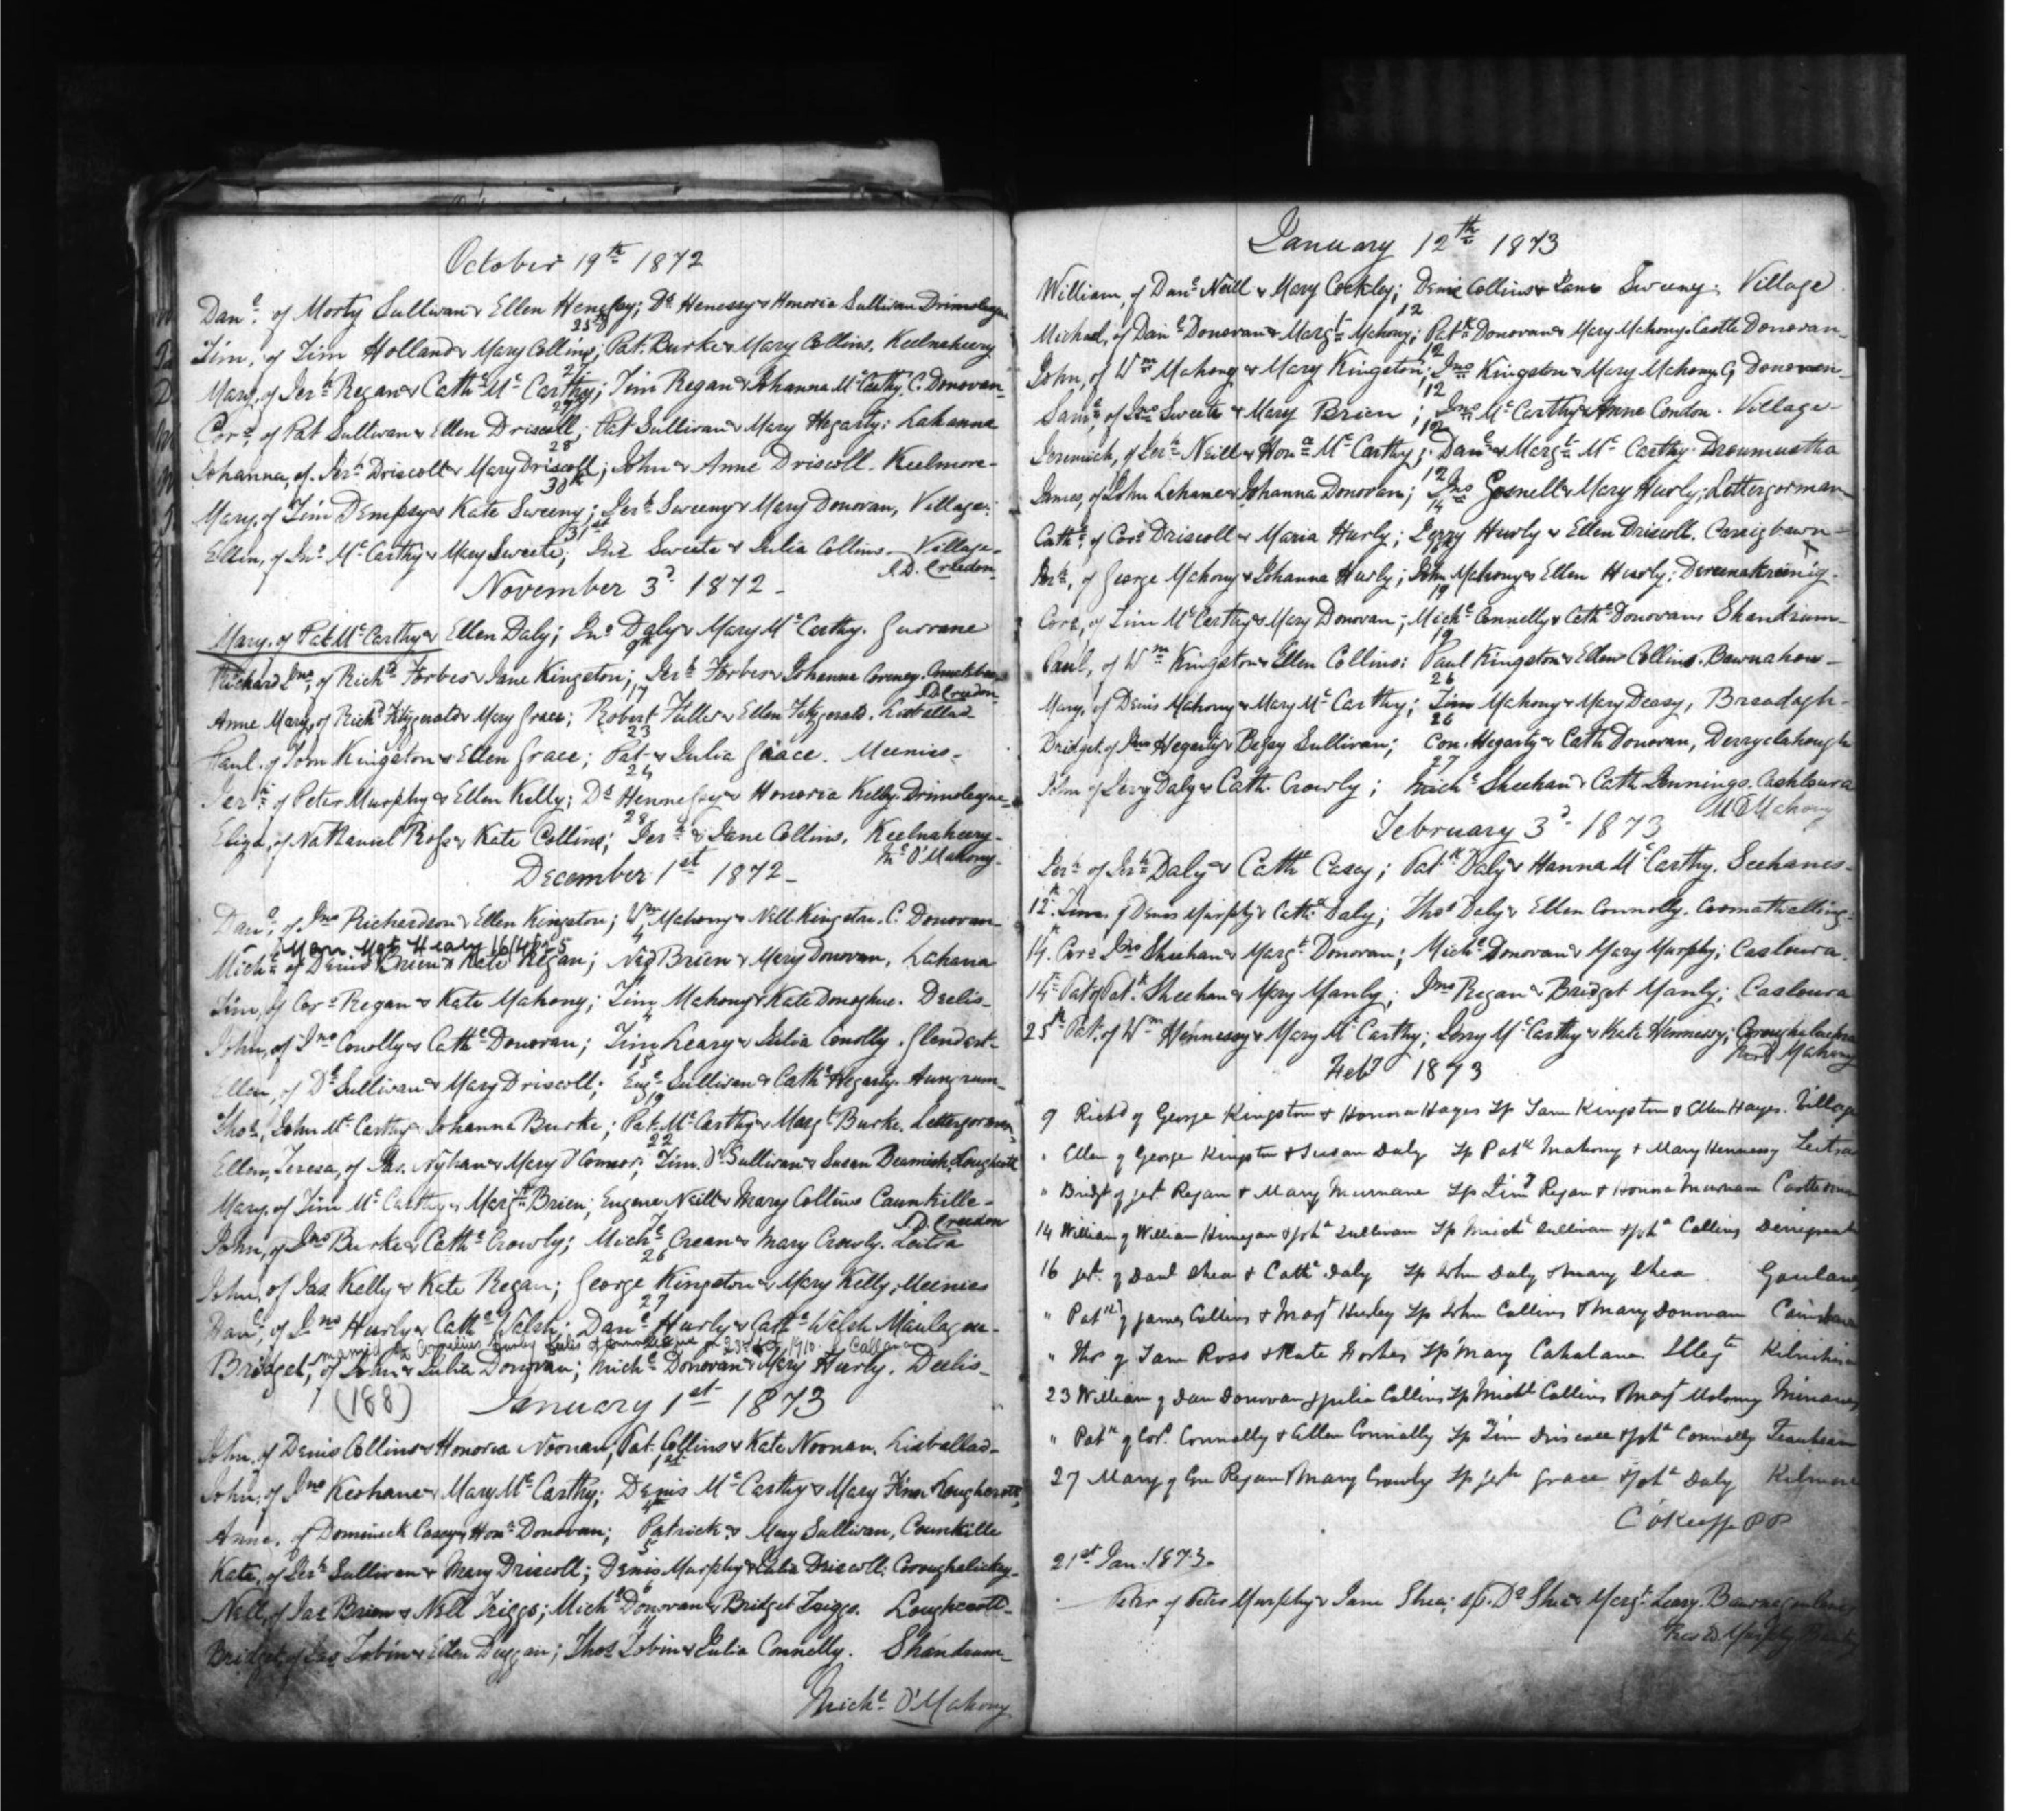 October 19th 1872
Danl. of Morty Sullivan & Ellen Henessy; Ds Henessy & Honoria Sullivan Drimoleague
25
Tim, of Tim Holland & Mary Collins; Pat. Burke & Mary Collins. Keelnaheery
27
Mary, of Jerh Regan & Cathe McCarthy; Tim Regan & Johanna McCarthy. C. Donovan
27
Cors, of Pat Sullivan & Ellen Driscoll; Pat Sullivan & Mary Hegarty; Lahanna
28
Johanna, of Jerh Driscoll & Mary Driscoll; John & Anne Driscoll. Keelmore
30th
Mary, of Tim Dempsy & Kate Sweeny; Jerh Sweeny & Mary Donovan, Village.
31st
Ellen, of Jno McCarthy & Mary Sweete; Jno Sweete & Julia Collins. Village
J.D. Creedon
November 3d 1872
Mary, of Pat McCarthy & Ellen Daly; Jno Daly & Mary McCarthy. Gurrane
9th
Richard Jno, of Richd Forbes & Jane Kingston; Jerh Forbes & Johanna
J.D. Creedon
17
Anne Mary, of Richd Fitzgerald & Mary Grace; Robert Fuller & Ellen Fitzgerald. Lisballad
23
Paul, of Tom Kingston & Ellen Grace; Pat & Julia Grace. Meenies
24
Jerh of Peter Murphy & Ellen Kelly; Ds Hennessy & Honoria Kelly. Drimoleague
28
Eliza, of Nathaniel Ross & Kate Collins; Jerh & Jane Collins. Keelnaheery
Ml O'Mahony
December 1st 1872
Danl. of Jno Richardson & Ellen Kingston; Wm Mahony & Nell Kingston. C. Donovan
4
Marr. Mgt Healy 16/4/825
Michl of Denis Brien & Kate Regan; Ned Brien & Mary Donovan. Lahana
Tim, of Cors Regan & Kate Mahony; Timy Mahony & Kate Donoghue. Deelis
John, of Jno Conolly & Cathe Donovan; Tim Leary & Julia Conolly. Glendart
15
Ellen, of Ds Sullivan & Mary Driscoll; Euge Sullivan & Cathe Hegarty. Aungrum
19
Thos, John McCarthy & Johanna Burke; Pat. McCarthy & Margt Burke. Lettergorman
22
Ellen, Teresa, of Jas. Nyhan & Mary O'Connor; Tim. D. Sullivan & Susan Beamish. Loughcrott
Mary, of Tim McCarthy & Margt Brien; Eugene Neill & Mary Collins Caunkille
J.D. Creedon
John, of Jno Burke & Cathe Crowly; Michl Crean & Mary Crowly. Leitra
26
John, of Jas Kelly & Kate Regan; George Kingston & Mary Kelly, Meenies
27
Danl, of Jno Hurly & Cathe Walsh; Danl Hurly & Cathe Welsh Maulagow
married to Cornelius Hurly 1910
Bridget, of John & Julia Donovan; Michl Donovan & Mary Hurly. Deelis
(188)
January 1st 1873
John, of Denis Collins & Honoria Noonan; Pat. Collins & Kate Noonan. Lisballad
1st
John, of Jno Keohane & Mary McCarthy; Denis McCarthy & Mary Loughcrott
4th
Anne, of Dominick Casey & Hona Donovan; Patrick & Mary Sullivan, Caunkille
5
Kate, of Jerh Sullivan & Mary Driscoll; Denis Murphy & Julia Driscoll. Coroughalickey
6
Nell, of Jas Brien & Nell Triggs; Michl Donovan & Bridget Triggs. Loughcrott
11
Bridget, of Jas Tobin & Ellen Duggan; Thos Tobin & Julia Connelly. Shandrum
Michl O'Mahony
January 12th 1873
William, of Danl Neill & Mary Cockley; Denis Collins & Jane Sweeny. Village
12
Michael, of Danl Donovan & Margt Mahony; Patk Donovan & Mary Mahony. Castle Donovan
12
John, of Wm Mahony & Mary Kingston; Jno Kingston & Mary Mahony. C. Donovan
12
Saml, of Jno Sweete & Mary Brien; Jno McCarthy & Anne Condon. Village
12
Jeremiah, of Jerh Neill & Hona McCarthy; Danl & Margt McCarthy. Droumuctha
12
James, of John Lehane & Johanna Donovan; Jno Gosnell & Mary Hurly; Lettergorman
14
Cathe, of Cors Driscoll & Maria Hurly; Jerry Hurly & Ellen Driscoll. Carrigbawn
Jerh, of George Mahony & Johanna Hurly; John Mahony & Ellen Hurly; Dereenakreenig
19
Cors, of Tim McCarthy & Mary Donovan; Michl Connelly & Cathe Donovan Shandrum
19
Paul, of Wm Kingston & Ellen Collins; Paul Kingston & Ellen Collins. Bawnahow
26
Mary, of Denis Mahony & Mary McCarthy; Tim Mahony & Mary Deasy, Breadagh
26
Bridget, of Jno Hegarty & Betsy Sullivan; Con. Hegarty & Cath Donovan, Derryclahough
27
John of Jerry Daly & Cath. Crowly; Michl Sheehan & Cath Jennings. Cashloura
M O'Mahony
February 3d 1873
Jerh of Jerh Daly & Cathe Casey; Patk Daly & Hanna McCarthy. Seehanes
12th. Tim. of Denis Murphy & Cathe Daly; Thos Daly & Ellen Connolly. Coomathalling
14th Cors Jno Sheehan & Margt Donovan; Michl Donovan & Mary Murphy; Casloura
14th Pat of Patk Sheehan & Mary Manly; Jno Regan & Bridget Manly; Casloura
25th Pat. of Wm Hennessy & Mary McCarthy; Jerry McCarthy & Kate Hennessy;
Mahony
Feby 1873
9 Richd of George Kingston & Honora Hayes Sp Sam Kingston & Ellen Hayes. Village
" Ellen of George Kingston & Susan Daly Sp Patk Mahony & Mary Hennessy Leitra
" Bridgt of Jerh Regan & Mary Murnane Sp Timy Regan & Honora Murnane
14 William of William Finegan & Joha Sullivan Sp Michl Sullivan & Joha Collins
16 Jerh of Danl Shea & Cathe Daly Sp John Daly & Mary Shea
" Patk of James Collins & Margt Hurley Sp John Collins & Mary Donovan
" Thos of Sam Ross & Kate Forbes Sp Mary Cahalane Illegte
23 William of Dan Donovan & Julia Collins Sp Michl Collins & Margt Mahony
" Patk of Cors. Connolly & Ellen Connolly Sp Tim Driscoll & Joha Connolly
27 Mary of Con Regan & Mary Crowly Sp Jerh Grace & Joha Daly Kilmore
C O'Keeffe PP
21st Jan. 1873.
Peter of Peter Murphy & Jane Shea; sp. Ds Shea & Margt Leary.